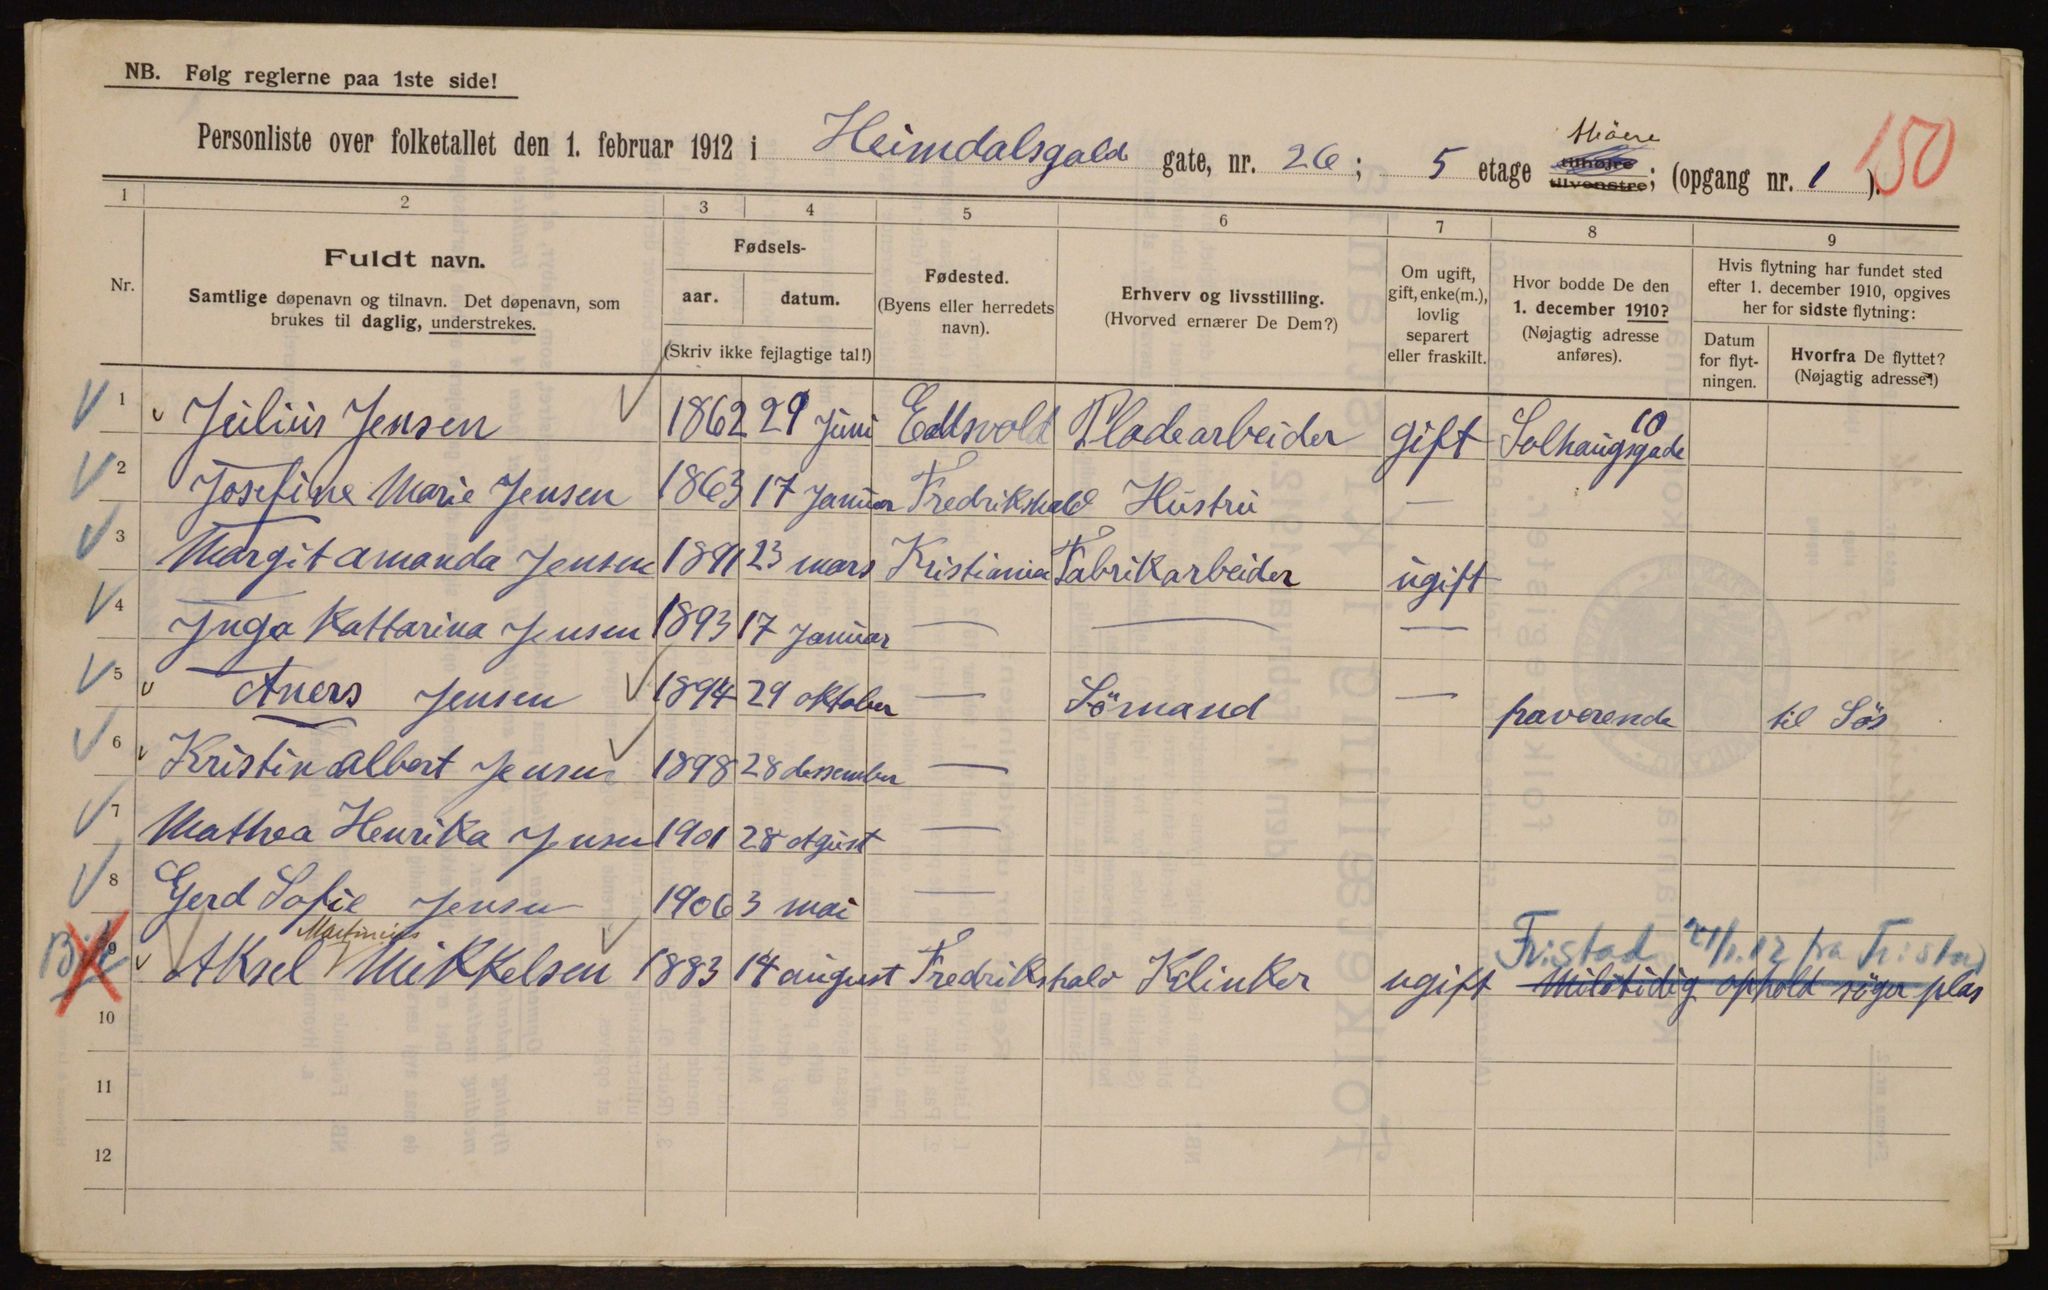 NB. Følg reglerne paa 1ste side!
Personliste over folketallet den 1. februar 1912 i Heimdalsgald gate, nr. 26; 5 etage tilhøjre tilvenstre; (opgang nr. 1). 150
1 2 3 4 5 6 7 8 9
Nr.
Fuldt navn.
Samtlige døpenavn og tilnavn. Det døpenavn, som
brukes til daglig, understrekes.
Fødsels-
aar. datum.
(Skriv ikke fejlagtige tal!)
Fødested.
(Byens eller herredets
navn).
Erhverv og livsstilling.
(Hvorved ernærer De Dem?)
Om ugift,
gift, enke(m.),
lovlig
separert
eller fraskilt.
Hvor bodde De den
1. december 1910?
(Nøjagtig adresse
anføres).
Hvis flytning har fundet sted
efter 1. december 1910, opgives
her for sidste flytning:
Datum
for flyt-
ningen.
Hvorfra De flyttet?
(Nøjagtig adresse!)
1 Julius Jensen 1862 29 Juni Edsvold Pladearbeider gift Solhaugsgade 10
2 Josefine Marie Jensen 1863 17 Januar Fredrikshald Hustru —
3 Margit amanda Jensen 1891 23 mars Kristiania Fabrikarbeider ugift
4 Inga Kattarina Jensen 1893 17 Januar — — —
5 Aners Jensen 1894 29 oktober — Sömand — fraverende til Sös
6 Kristin albert Jensen 1898 28 dessember —
7 Mathea Henrika Jensen 1901 28 Agust —
8 Gerd Sofie Jensen 1906 3 mai —
Martinius Fr.stad 21/1.12 fra Fr.stad
9 Aksel Mikkelsen 1883 14 august Fredrikshald Klinker ugift Milötidig ophold söger plas
10
11
12